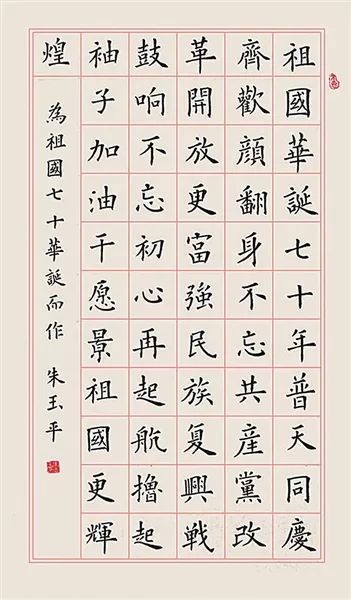 祖國華誕七十年普天同慶
齊歡顔翻身不忘共産黨改
革開放更富強民族复興戰
鼓响不忘初心再起航擼起
袖子加油干愿景祖國更輝
煌
為祖國七十華誕而作 朱玉平